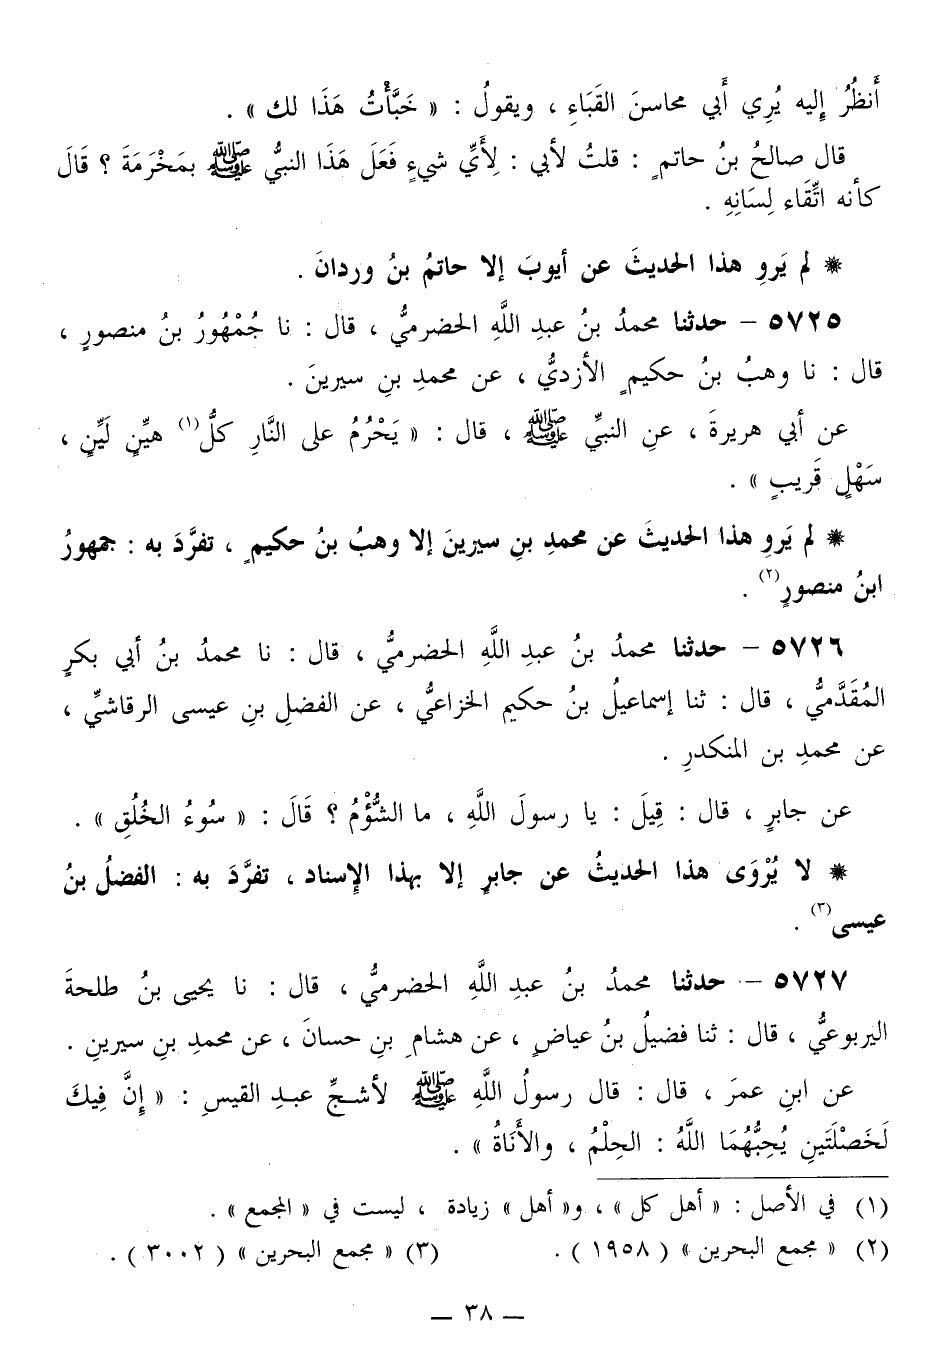 أَنظُرُ إليه يُرِي أَبي محاسنَ القَبَاءِ ، ويقولُ : « خَبَّأْتُ هَذَا لك » .
قال صالحُ بنُ حاتمٍ : قلتُ لأبي : لِأَيِّ شيءٍ فَعَلَ هَذَا النبيُّ ﷺ بمَخْرَمَةَ ؟ قَالَ
كأنه اتِّقَاء لِسَانِهِ .
* لم يَروِ هذا الحديثَ عن أيوبَ إلا حاتمُ بنُ وردانَ .
٥٧٢٥ – حدثنا محمدُ بنُ عبدِ اللَّهِ الحضرميُّ ، قال : نا جُمْهُورُ بنُ منصورٍ ،
قال : نا وهبُ بنُ حكيمٍ الأزديُّ ، عن محمدِ بنِ سيرينَ .
عن أبي هريرةَ ، عنِ النبيِّ ﷺ ، قال : « يَحْرُمُ على النَّارِ كلُّ(١) هيِّنٍ لَيِّنٍ ،
سَهْلٍ قَريبٍ » .
* لم يَروِ هذا الحديثَ عن محمدِ بنِ سيرينَ إلا وهبُ بنُ حكيمٍ ، تفرَّدَ به : جمهورُ
ابنُ منصورٍ(٢) .
٥٧٢٦ – حدثنا محمدُ بنُ عبدِ اللَّهِ الحضرميُّ ، قال : نا محمدُ بنُ أبي بكرٍ
المُقَدَّميُّ ، قال : ثنا إسماعيلُ بنُ حكيم الخزاعيُّ ، عن الفضلِ بنِ عيسى الرقاشيِّ ،
عن محمدِ بن المنكدرِ .
عن جابرٍ ، قال : قِيلَ : يا رسولَ اللَّهِ ، ما الشُّؤْمُ ؟ قَالَ : « سُوءُ الخُلُقِ » .
* لا يُرْوَى هذا الحديثُ عن جابرٍ إلا بهذا الإسناد ، تفرَّدَ به : الفضلُ بنُ
عيسى(٣) .
٥٧٢٧ – حدثنا محمدُ بنُ عبدِ اللَّهِ الحضرميُّ ، قال : نا يحيى بنُ طلحةَ
اليربوعيُّ ، قال : ثنا فضيلُ بنُ عياضٍ ، عن هشامِ بنِ حسانَ ، عن محمدِ بنِ سيرينِ .
عن ابنِ عمرَ ، قال : قال رسولُ اللَّهِ ﷺ لأشجِّ عبدِ القيسِ : « إِنَّ فِيكَ
لَخَصْلَتَينِ يُحِبُّهُمَا اللَّهُ : الحِلْمُ ، والأَنَاةُ » .
(١) في الأصل : « أهل كل » ، و« أهل » زيادة ، ليست في « المجمع » .
(٢) « مجمع البحرين » ( ١٩٥٨ ) . (٣) « مجمع البحرين » ( ٣٠٠٢ ) .
– ٣٨ –